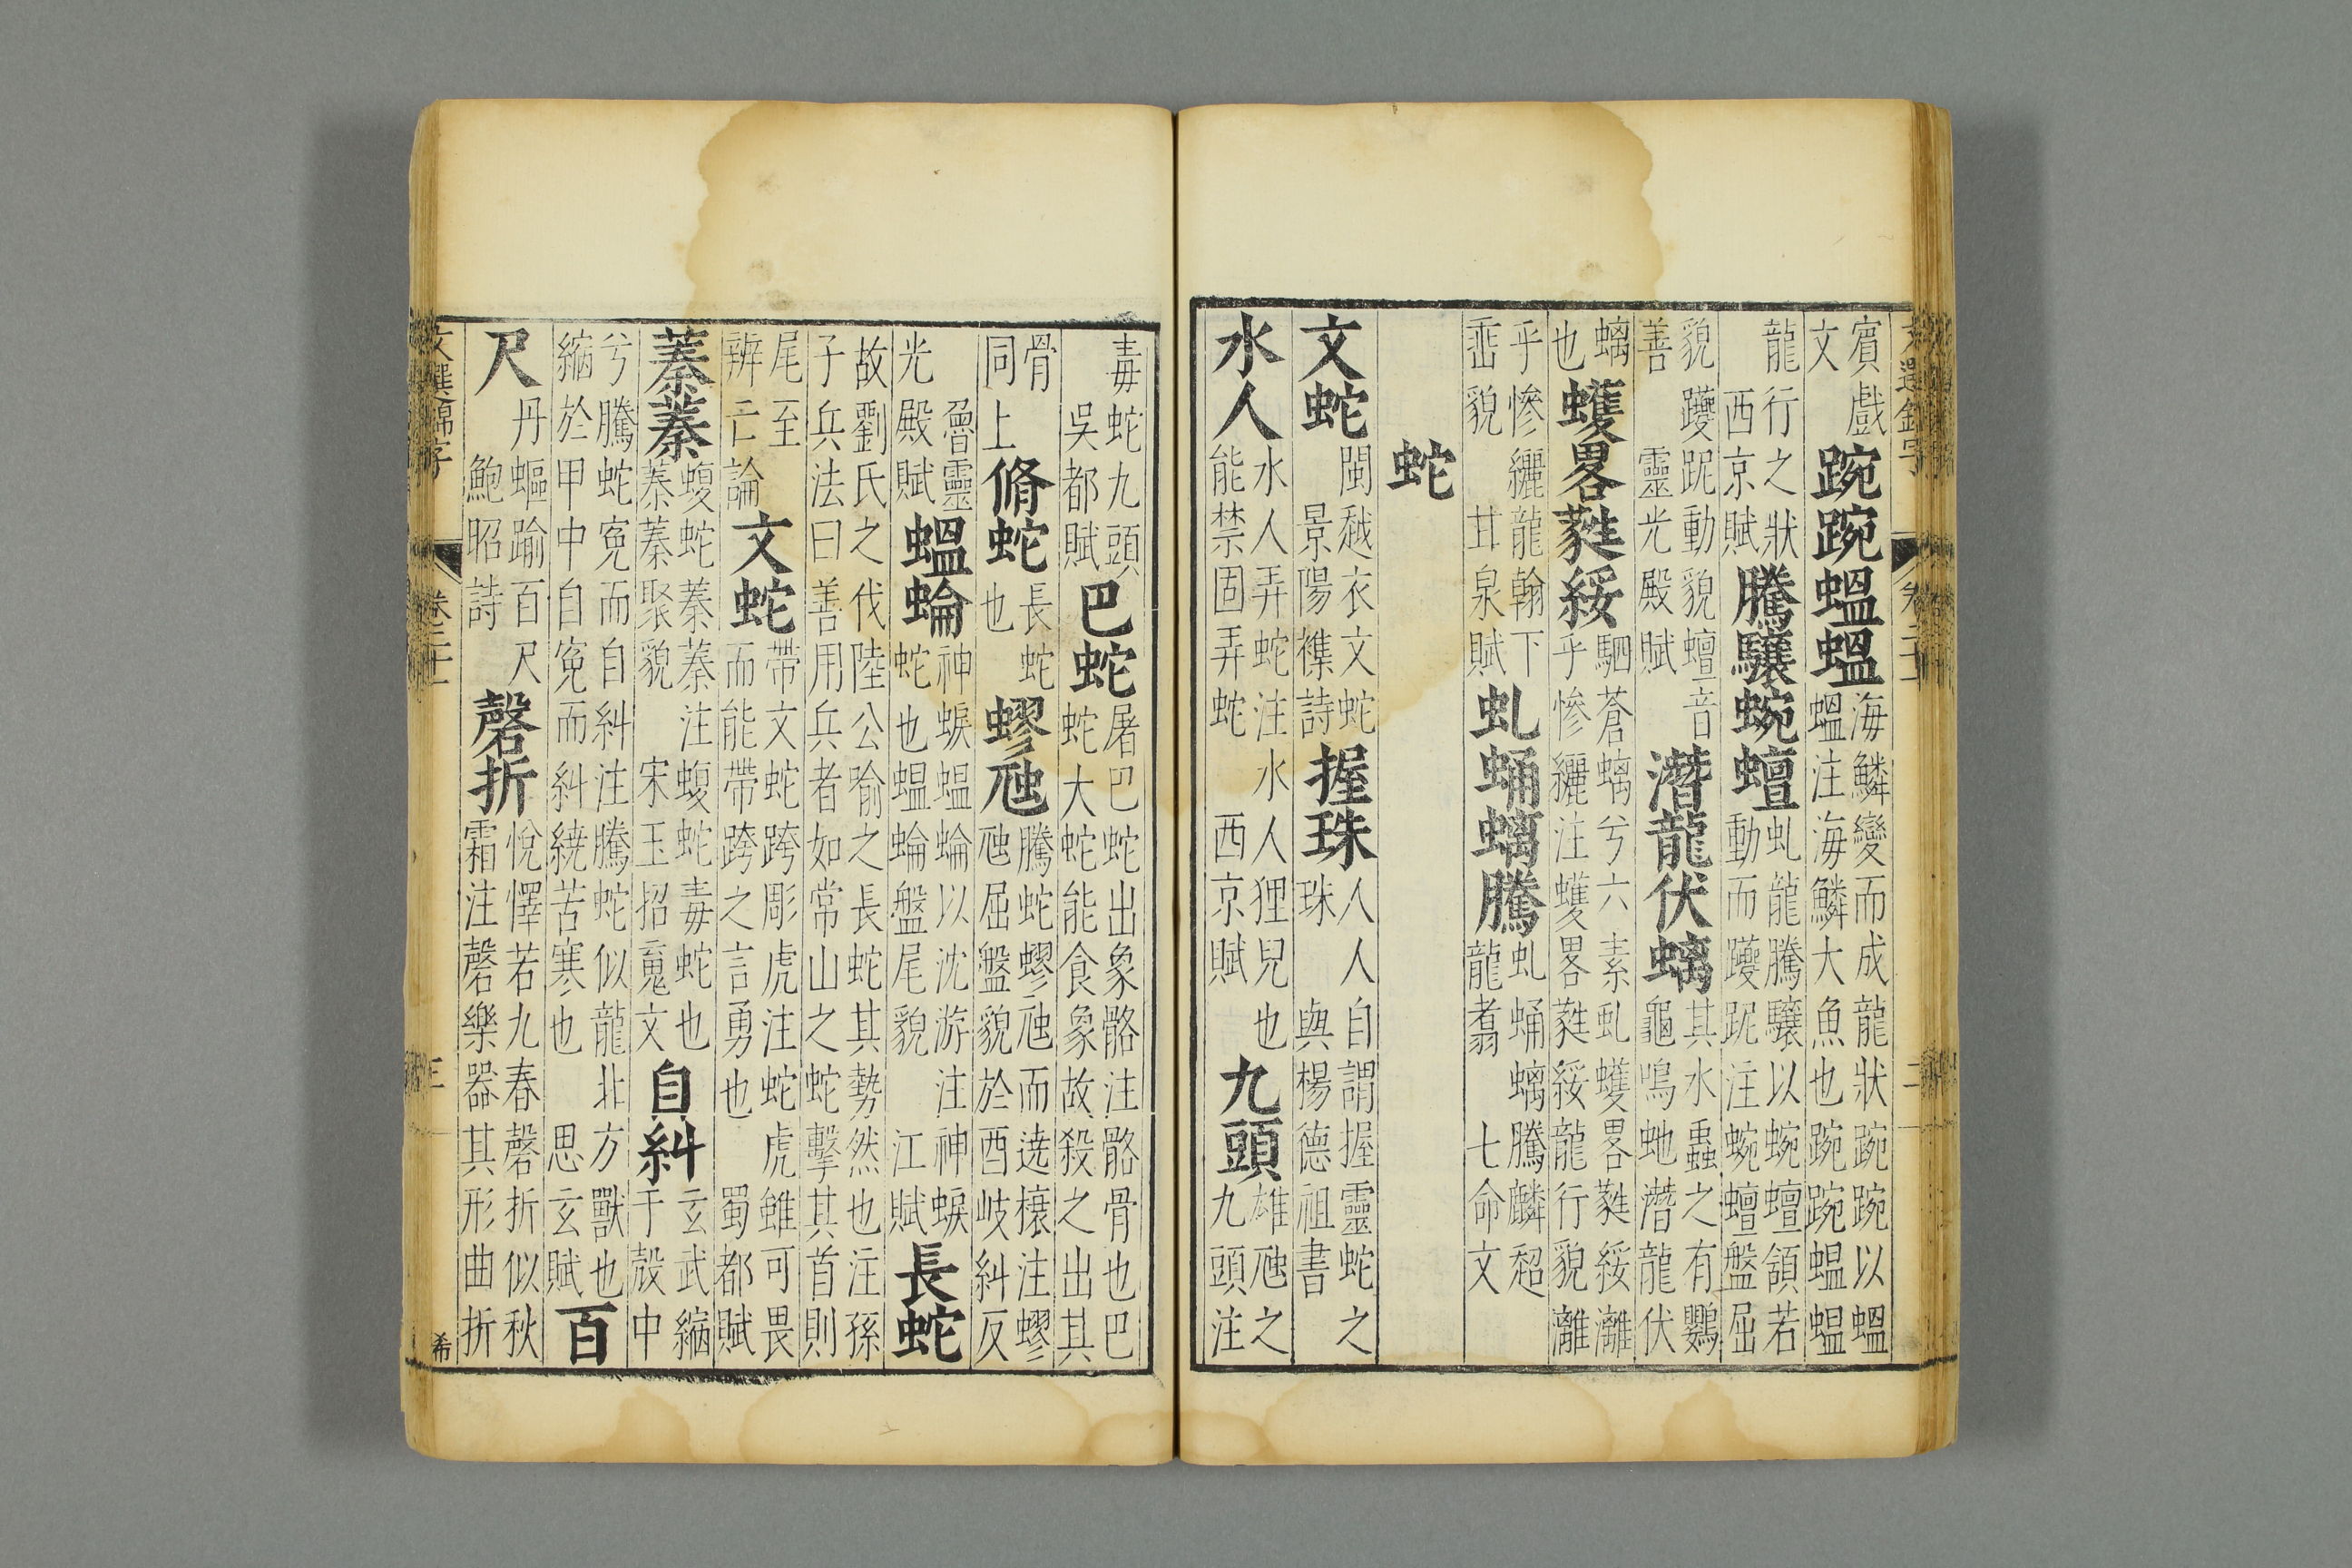 賔戲
文
踠踠蝹蝹
海鱗變而成龍狀踠踠以蝹
蝹注海鱗大魚也踠踠蝹蝹
龍行之狀
西京賦
騰驤蜿蟺
虬龍騰驤以蜿蟺頷若
動而躨跜注蜿蟺盤屈
貌躨跜動貌蟺音
善 靈光殿賦
潛龍伏螭
其水蟲之有鸚
龜鳴虵潛龍伏
螭
也
蠖畧蕤綏
駟蒼螭兮六素虬蠖畧蕤綏灕
乎慘纚注蠖畧蕤綏龍行貌灕
乎慘纚龍翰下
垂貌 甘泉賦
虬蛹螭騰
虬蛹螭騰麟超
龍翥 七命文
蛇
文蛇
閩越衣文蛇
景陽襍詩
握珠
人人自謂握靈蛇之
珠 與楊德祖書
水人
水人弄蛇注水人狸兒也
能禁固弄蛇 西京賦
九頭
雄虺之
九頭注
毒蛇九頭
吳都賦
巴蛇
屠巴蛇出象骼注骼骨也巴
蛇大蛇能食象故殺之出其
骨
同上
脩蛇
長蛇
也
蟉虺
騰蛇蟉虺而遶榱注蟉
虺屈盤貌於酉岐糾反
魯靈
光殿賦
蝹蜦
神蜧蝹蜦以沈游注神蜧
蛇也蝹蜦盤尾貌 江賦
長蛇
故劉氏之伐陸公喻之長蛇其勢然也注孫
子兵法曰善用兵者如常山之蛇擊其首則
尾至
辨亡論
文蛇
帶文蛇跨彫虎注蛇虎雖可畏
而能帶跨之言勇也 蜀都賦
蓁蓁
蝮蛇蓁蓁注蝮蛇毒蛇也
蓁蓁聚貌 宋玉招䰟文
自糾
玄武縮
于殼中
兮騰蛇寃而自糾注騰蛇似龍北方獸也
縮於甲中自寃而糾繞苦寒也 思玄賦
百
尺
丹蝹踰百尺
鮑昭詩
磬折
悅懌若九春磬折似秋
霜注磬樂器其形曲折
文選錦字
卷二十一
三
希